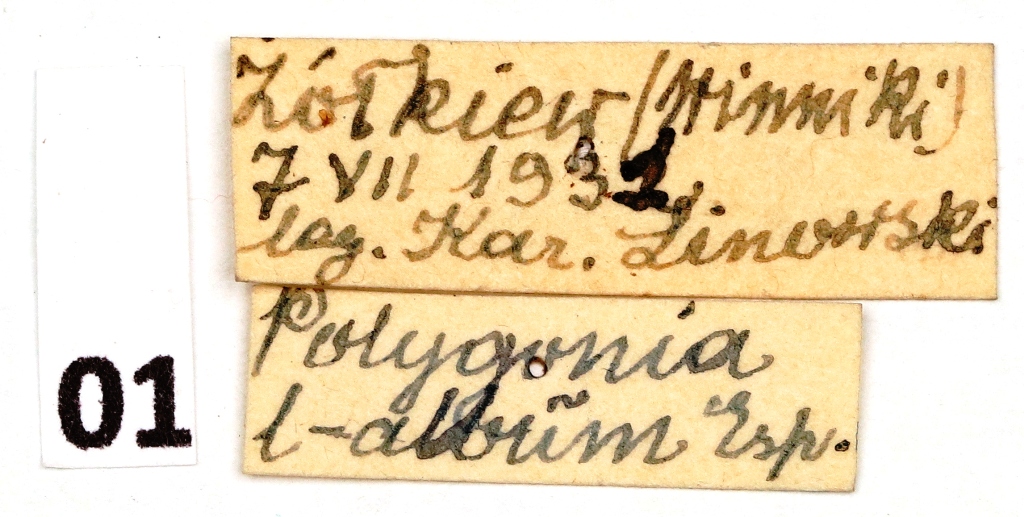 01
Żółkiew (Winniki)
7 VII 1931
leg. Kar. Linowski
Polygonia
l-albūm Esp.